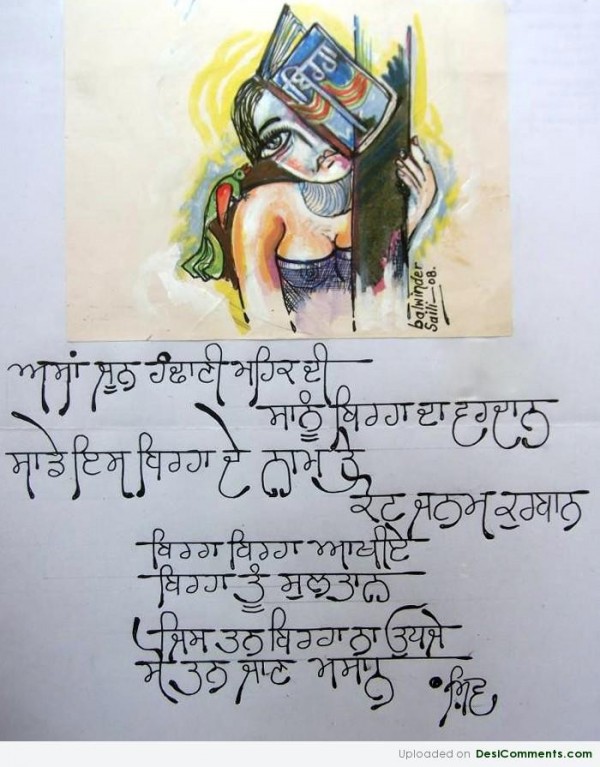 ਬਿਰਹਾ
balwinder
Saili-08.
ਅਸਾਂ ਜੂਨ ਹੰਢਾਣੀ ਮਹਿਕ ਦੀ
ਸਾਨੂੰ ਬਿਰਹਾ ਦਾ ਵਰਦਾਨ
ਸਾਡੇ ਇਸ ਬਿਰਹਾ ਦੇ ਨਾਮ ਤੇ
ਕੋਟ ਜਨਮ ਕੁਰਬਾਨ
ਬਿਰਹਾ ਬਿਰਹਾ ਆਖੀਏ
ਬਿਰਹਾ ਤੂੰ ਸੁਲਤਾਨ
ਜਿਸ ਤਨ ਬਿਰਹਾ ਨਾ ਉਪਜੇ
ਸੋ ਤਨ ਜਾਣ ਮਸਾਨ
• ਸ਼ਿਵ
Uploaded on DesiComments.com